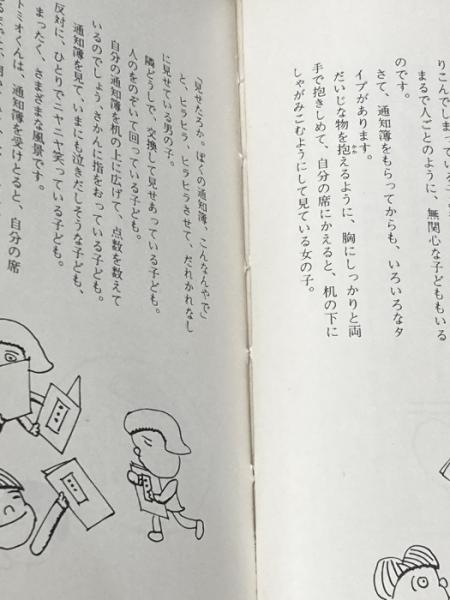 りこんでしまっている
まるで人ごとのように、無関心な子どももいる
のです。
さて、通知簿をもらってからも、いろいろなタ
イプがあります。
だいじな物を抱えるように、胸にしっかりと両
かか
手で抱きしめて、自分の席にかえると、机の下に
しゃがみこむようにして見ている女の子。
「見せたろか。ぼくの通知簿、こんなんやで」
と、ヒラヒラ、ヒラヒラさせて、だれかれなし
に見せている男の子。
隣どうしで、交換して見せあっている子ども。
人のをのぞいて回っている子ども。
自分の通知簿を机の上に広げて、点数を数えて
いるのでしょう、さかんに指をおっている子ども。
通知簿を見て、いまにも泣きだしそうな子ども、
反対に、ひとりでニヤニヤ笑っている子ども。
まったく、さまざまな風景です。
トミオくんは、通知簿を受けとると、自分の席